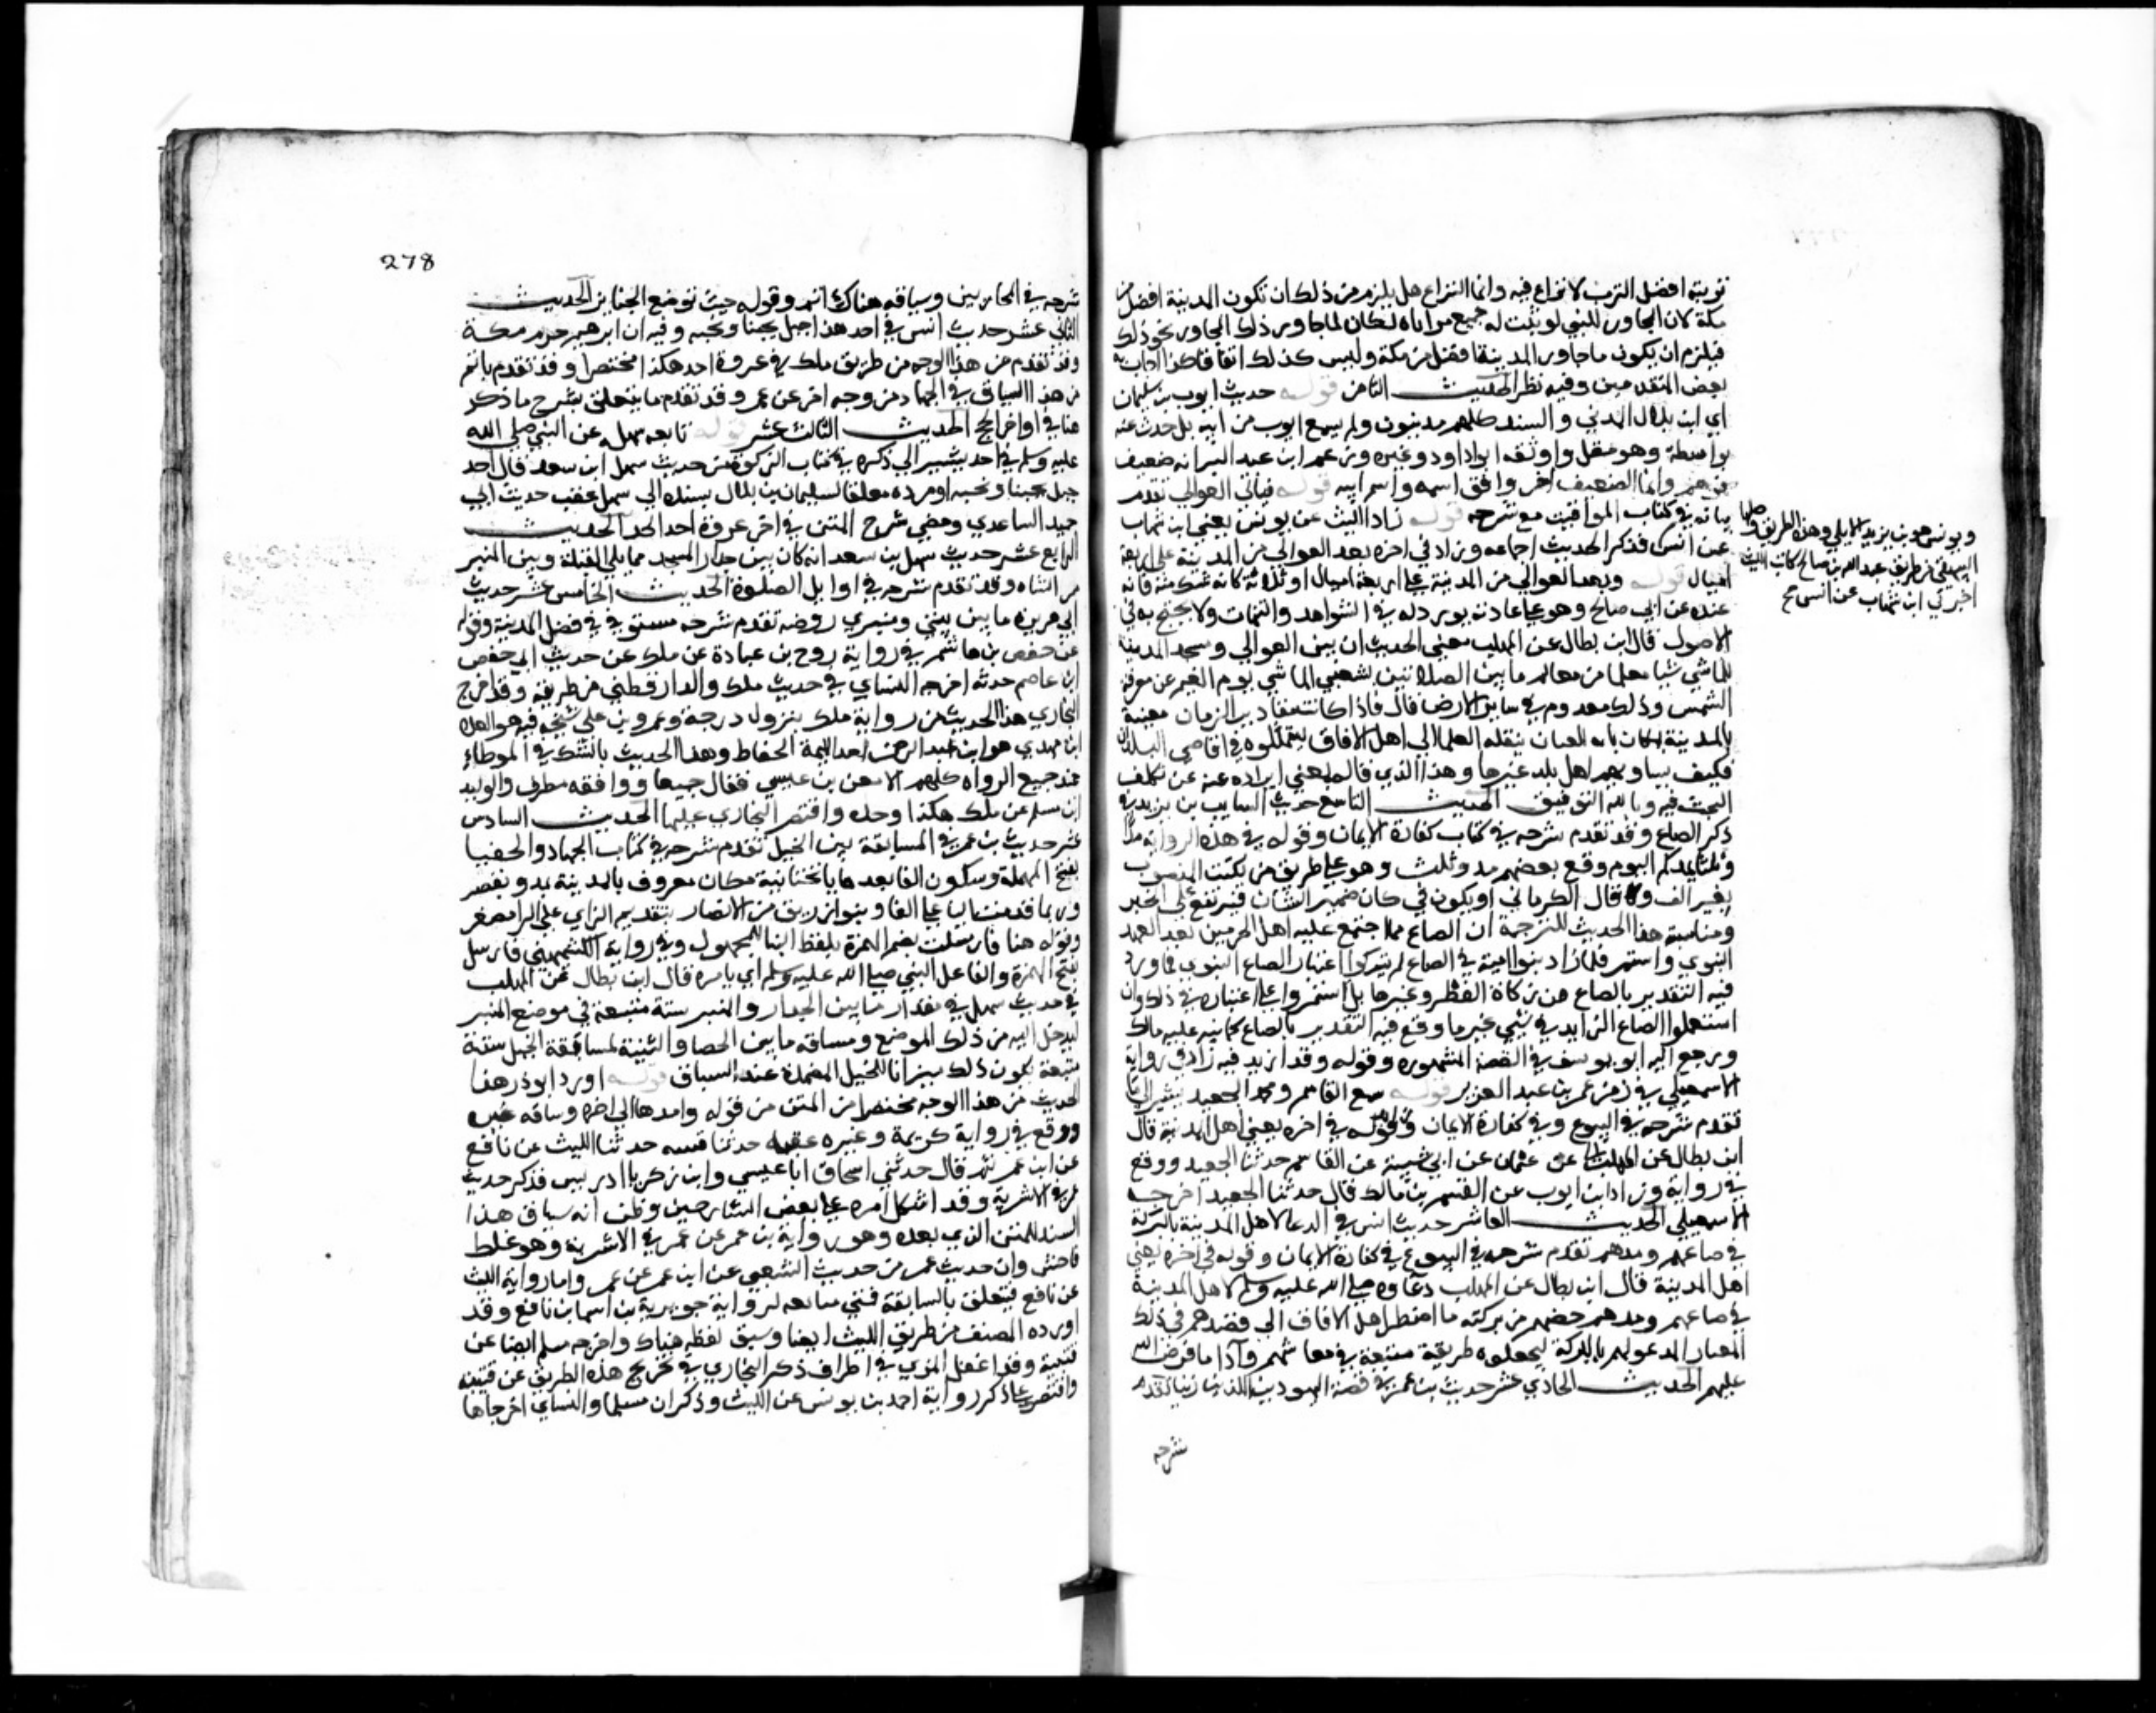 تربته افضل الترب لا نزاع فيه وانما النزاع هل يلزم من ذلك ان تكون المدينة افضل من
مكة لان المجاور للشي لو ثبت له جميع مزاياه لكان لما جاور ذلك المجاور نحو ذلك
فيلزم ان يكون ما جاور المدينة افضل من مكة وليس كذلك اتفاقا كذا اجاب به
بعض المتقدمين وفيه نظر الحديث الثامن قوله حديث ايوب بن سليمان
اي ابن بلال المدني والسند كلهم مدنيون ولم يسمع ايوب من ابيه بل حدث عنه
بواسطة وهو مقل وثقه ابو داود وغيره وزعم ابن عبد البر انه ضعيف
فوهم وانما الضعيف اخر وافق اسمه واسم ابيه قوله فياتي العوالي تقدم
بيانه في كتاب المواقيت مع شرحه قوله زاد الليث عن يونس يعني ابن شهاب
عن انس فذكر الحديث اجمعه وزاد في اخره بعد العوالي من المدينة على اربعة
اميال قوله وبعد العوالي من المدينة على اربعة اميال او ثلاثة كانه شك منه فانه
عنده عن ابي صالح وهو على عادته يورد له في الشواهد والتتمات ولا يحتج به في
الاصول قال ابن بطال عن المهلب معنى الحديث ان بين العوالي ومسجد المدينة
للماشي شيا معلما من معالم ما بين الصلاتين يستغني الماشي يوم الغيم عن معرفة
الشمس وذلك معدوم في ساير الارض قال فاذا كانت مقادير الزمان معينة
بالمدينة بمكان باد للعيان ينقله العلما الى اهل الافاق ليتمثلوه في اقاصي البلدان
فكيف يساويهم اهل بلد غيرها وهذا الذي قاله يغني ايراده عنه عن تكلف
البحث فيه وبالله التوفيق الحديث التاسع حديث السايب بن يزيد في
ذكر الصاع وقد تقدم شرحه في كتاب كفارة الايمان وقوله في هذه الرواية مدا
وثلثا بمدكم اليوم وقع لبعضهم مد وثلث وهو على طريق من يكتب المنصوب
بغير الف وقال الكرماني او يكون في كان ضمير الشان فيرتفع على الخبر
ومناسبة هذا الحديث للترجمة ان الصاع مما اجتمع عليه اهل الحرمين بعد العهد
النبوي واستمر فلما زاد بنو امية في الصاع لم يتركوا اعتبار الصاع النبوي فيما ورد
فيه التقدير بالصاع من زكاة الفطر وغيرها بل استمروا على اعتباره في ذلك وان
استعملوا الصاع الزايد في شيء غير ما وقع فيه التقدير بالصاع كما نبه عليه مالك
ورجع اليه ابو يوسف في القصة المشهورة وقوله وقد زيد فيه زاد في رواية
الاسمعيلي في زمن عمر بن عبد العزيز قوله سمع القاسم ومحمد الجعيد يشير الى ما
تقدم شرحه في البيوع وفي كفارة الايمان وقوله في اخره يعني اهل المدينة قال
ابن بطال عن المهلب عن عثمان عن ابي شيبة عن القاسم حدثنا الجعيد ووقع
في رواية زياد بن ايوب عن القسم بن مالك قال حدثنا الجعيد اخرجه
الاسمعيلي الحديث العاشر حديث انس في الدعا لاهل المدينة بالبركة
في صاعهم ومدهم تقدم شرحه في البيوع في كفارة الايمان وقوله في اخره يعني
اهل المدينة قال ابن بطال عن المهلب دعاوه صلى الله عليه وسلم لاهل المدينة
في صاعهم ومدهم خصهم من بركته ما اضطر اهل الافاق الى قصدهم في ذلك
المعيار المدعو لهم بالبركة ليجعلوه طريقة متبعة في معاشهم وادا ما فرض الله
عليهم الحديث الحادي عشر حديث بن عمر في قصة اليهوديين اللذين زنيا تقدم
شرحه
ويونس هو بن يزيد الايلي وهذه الطريق وصلها
البيهقي من طريق عبد الله بن صالح كاتب الليث
اخبرني ابن شهاب عن انس صح
278
شرحه في المحاربين وسياقه هناك اتم وقوله حيث توضع الجنايز الحديث
الثاني عشر حديث انس في احد هذا جبل يحبنا ونحبه وفيه ان ابرهيم حرم مكة
وقد تقدم من هذا الوجه من طريق ملك في غزوة احد هكذا مختصرا وقد تقدم باتم
من هذا السياق في الجهاد من وجه اخر عن عمرو قد تقدم ما يتعلق بشرح ما ذكر
هنا في اواخر الحج الحديث الثالث عشر قوله تابعه سهل عن النبي صلى الله
عليه وسلم في احد يشير الى ذكره في كتاب الزكوة من حديث سهل ابن سعد قال احد
جبل يحبنا ونحبه اورده معلقا لسليمان بن بلال بسنده الى سهل عقب حديث ابي
حميد الساعدي ومضى شرح المتن في اخر غزوة احد الحديث
الرابع عشر حديث سهل بن سعد انه كان بين جدار المسجد مما يلي القبلة وبين المنبر
ممر الشاة وقد تقدم شرحه في اوايل الصلوة الحديث الخامس عشر حديث
ابي هريرة ما بين بيتي ومنبري روضة تقدم شرحه مستوفى في فضل المدينة وقوله
عن حفص بن عاصم في رواية روح بن عبادة عن ملك عن حديث ان حفص
ابن عاصم حدثه اخرجه النساي في حديث ملك والدارقطني من طريقه وقد اخرج
البخاري هذا الحديث من رواية ملك بنزول درجة وعمرو بن علي شيخه فيه هو الفلاس
ابن مهدي هو ابن عبد الرحمن احد ايمة الحفاظ وهذا الحديث بالشك في الموطاء
عند جميع الرواة كلهم الا معن بن عيسى فقال جميعا ووافقه مطرف والوليد
ابن مسلم عن ملك هكذا وحده واقتصر البخاري عليها الحديث السادس
عشر حديث بن عمر في المسابقة بين الخيل تقدم شرحه في كتاب الجهاد والحفيا
بفتح المهملة وسكون الفا بعدها يا تحتانية مكان معروف بالمدينة يمد ويقصر
وربما قدمت اليا على الفا وبنو زريق من الانصار بتقديم الزاي على الرا مصغر
وقوله هنا فارسلت بضم الهمزة بلفظ البنا للمجهول وفي رواية الكشميهني فارسل
بفتح الهمزة والفاعل النبي صلى الله عليه وسلم اي بامره قال ابن بطال عن المهلب
في حديث سهل في مقدار ما بين الجدار والمنبر سنة متبعة في موضع المنبر
ليدخل اليه من ذلك الموضع ومسافة ما بين الحفيا والثنية لمسابقة الخيل سنة
متبعة يكون ذلك ميزانا للخيل المضمرة عند السباق قوله اورد ابو ذر هذا
الحديث من هذا الوجه مختصرا من المتن من قوله وامدها الى اخره وساقه غيره
ووقع في رواية كريمة وغيره عقبه حدثنا قتيبه حدثنا الليث عن نافع
عن ابن عمر ثم قال حدثني اسحاق انا عيسى وابن زكريا ادريس فذكر حديث
عمر في الاشربة وقد اشكل امره على بعض الشارحين وظن انه سياق هذا
السند للمتن الذي بعده وهو رواية بن عمر عن عمر في الاشربة وهو غلط
فاحش وان حديث عمر من حديث الشعبي عن ابن عمر عن عمر واما رواية الليث
عن نافع فيتعلق بالمسابقة فهي متابعه لرواية جويرية بن اسما عن نافع وقد
اورده المصنف من طريق الليث ايضا وسبق لفظه هناك واخرجه مسلم ايضا عن
قتيبة وقد اغفل المزي في اطراف ذكر البخاري في تخريج هذه الطريق عن قتيبه
واقتصر على ذكر رواية احمد بن يونس عن الليث وذكر ان مسلما والنساي اخرجاها